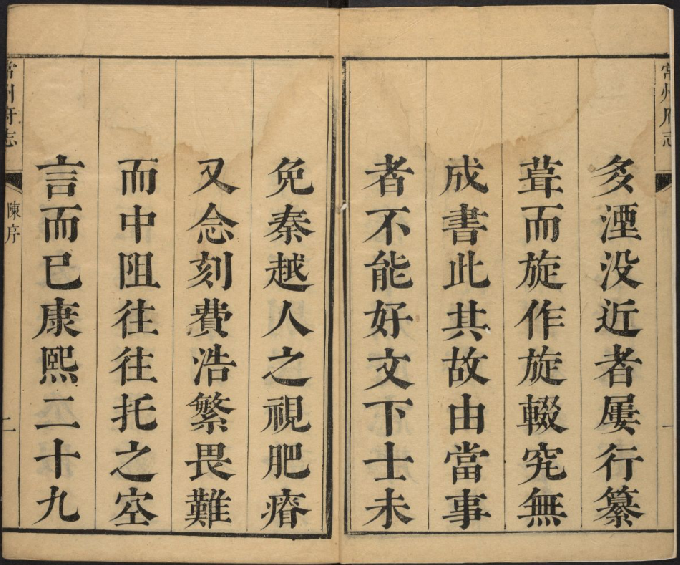 常州府志
多湮没近者屢行纂
葺而旋作旋輟究無
成書此其故由當事
者不能好文下士未
免秦越人之視肥瘠
又念刻費浩繁畏難
而中阻往往托之空
言而已康熙二十九
常州府志
陳序
二